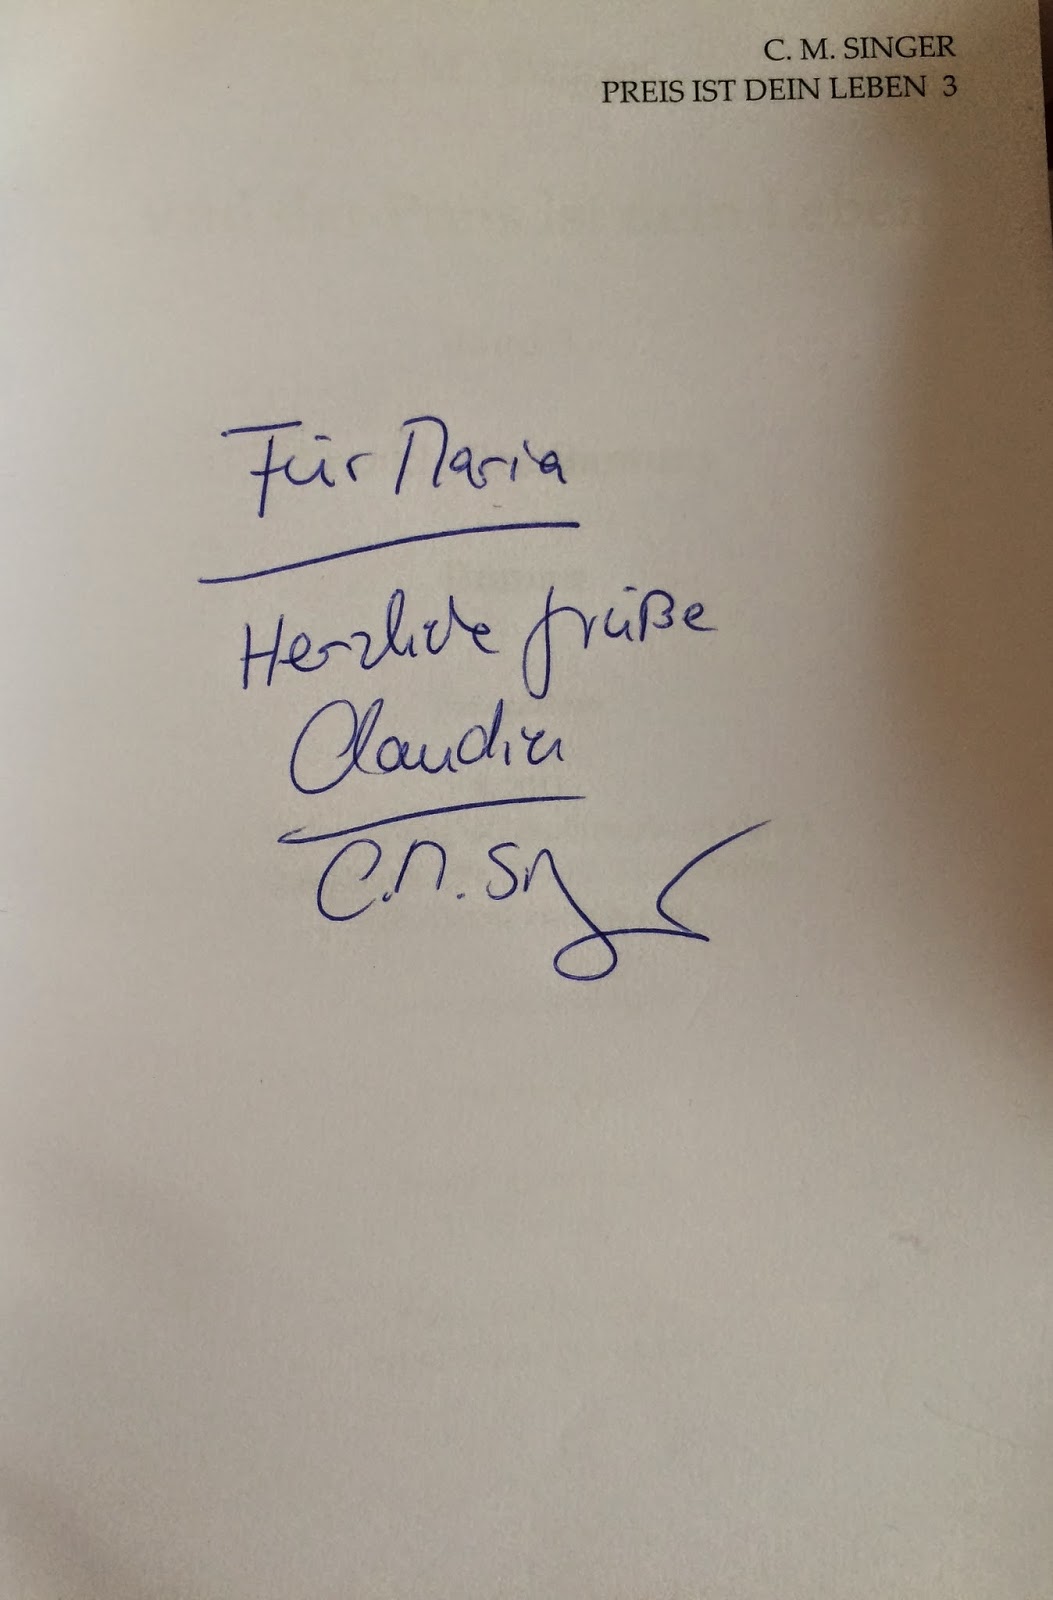 C. M. SINGER
PREIS IST DEIN LEBEN 3
Für Maria
Herzliche Grüße
Claudia
C.M. Singer